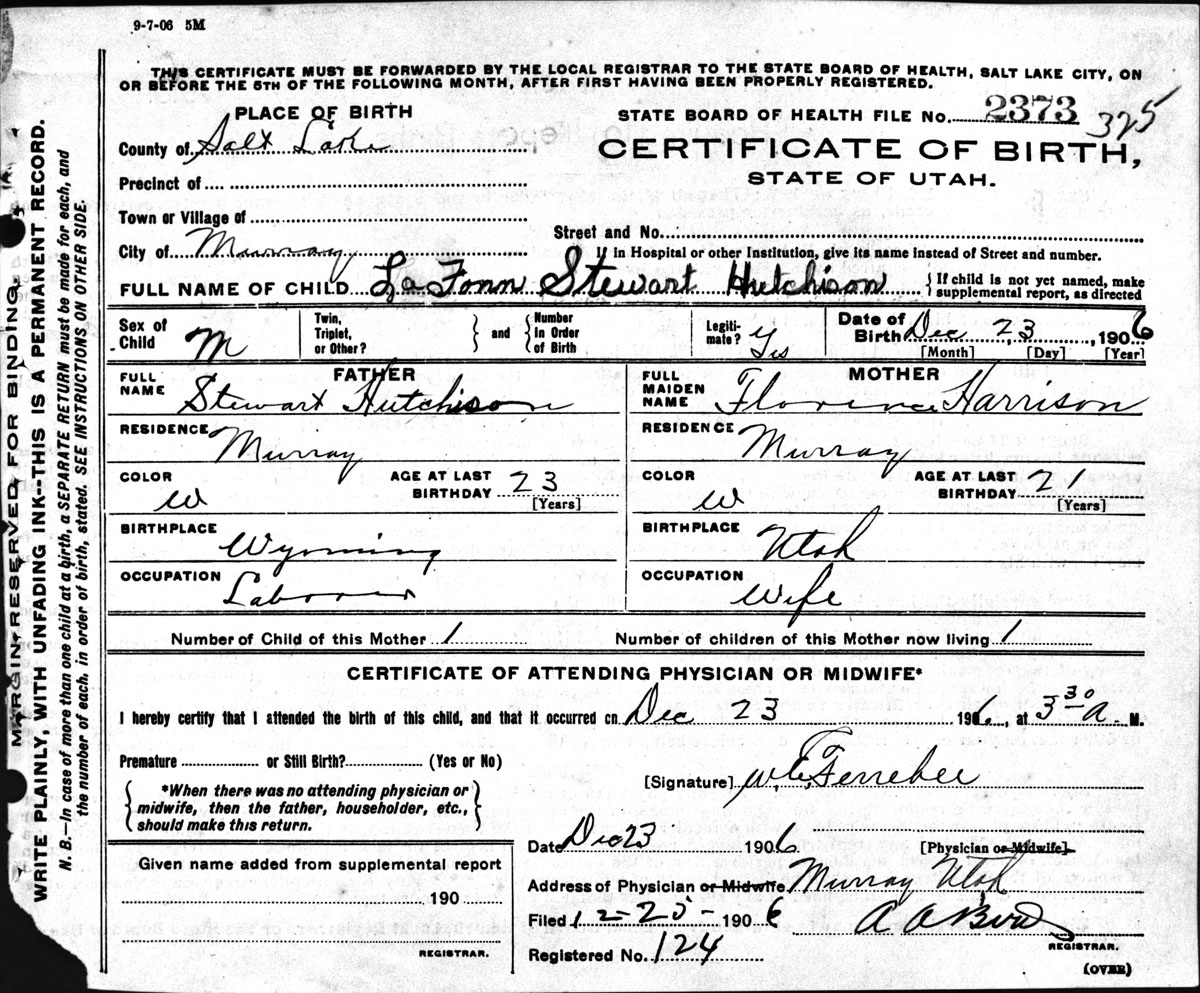 9-7-06 5M
THIS CERTIFICATE MUST BE FORWARDED BY THE LOCAL REGISTRAR TO THE STATE BOARD OF HEALTH, SALT LAKE CITY, ON
OR BEFORE THE 5TH OF THE FOLLOWING MONTH, AFTER FIRST HAVING BEEN PROPERLY REGISTERED.
PLACE OF BIRTH
County of Salt Lake
Precinct of
Town or Village of
City of Murray
STATE BOARD OF HEALTH FILE No. 2373 325
CERTIFICATE OF BIRTH,
STATE OF UTAH.
Street and No.
If in Hospital or other Institution, give its name instead of Street and number.
FULL NAME OF CHILD La Fonn Stewart Hutchison { If child is not yet named, make
supplemental report, as directed
Sex of Child M
Twin, Triplet, or Other? } and { Number in Order of Birth
Legiti-mate? Yes
Date of Birth Dec 23, 1906
[Month] [Day] [Year]
FATHER
FULL NAME Stewart Hutchison
RESIDENCE Murray
COLOR W AGE AT LAST BIRTHDAY 23 [Years]
BIRTHPLACE Wyoming
OCCUPATION Laborer
MOTHER
FULL MAIDEN NAME Florence Harrison
RESIDENCE Murray
COLOR W AGE AT LAST BIRTHDAY 21 [Years]
BIRTHPLACE Utah
OCCUPATION Wife
Number of Child of this Mother 1 Number of children of this Mother now living 1
CERTIFICATE OF ATTENDING PHYSICIAN OR MIDWIFE*
I hereby certify that I attended the birth of this child, and that it occurred on Dec 23 1906, at 3 30 A. M.
Premature or Still Birth? (Yes or No)
{ *When there was no attending physician or
midwife, then the father, householder, etc.,
should make this return. }
[Signature] Ferrebee
Date Dec 23 1906 [Physician or Midwife]
Address of Physician or Midwife Murray Utah
Filed 12-25-1906
REGISTRAR.
Registered No. 124
Given name added from supplemental report
190
REGISTRAR.
(OVER)
MARGIN RESERVED FOR BINDING.
WRITE PLAINLY, WITH UNFADING INK--THIS IS A PERMANENT RECORD.
N. B.—In case of more than one child at a birth, a SEPARATE RETURN must be made for each, and
the number of each, in order of birth, stated. SEE INSTRUCTIONS ON OTHER SIDE.